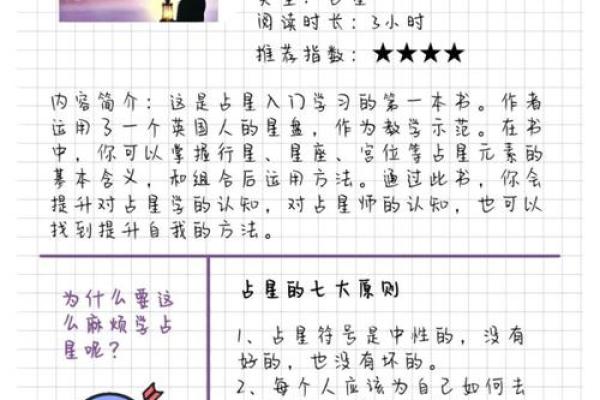 阅读时长：3小时
推荐指数：★★★★
内容简介：这是占星入门学习的第一本书。作者
运用了一个英国人的星盘，作为教学示范。在书
中，你可以掌握行星、星座、宫位等占星元素的
基本含义，和组合后运用方法。通过此书，你会
提升对占星学的认知，对占星师的认知，也可以
找到提升自我的方法。
为什么要这
么麻烦学占
星呢？
占星的七大原则
1、占星符号是中性的，没有
好的，也没有坏的。
2、每个人应该为自己如何去